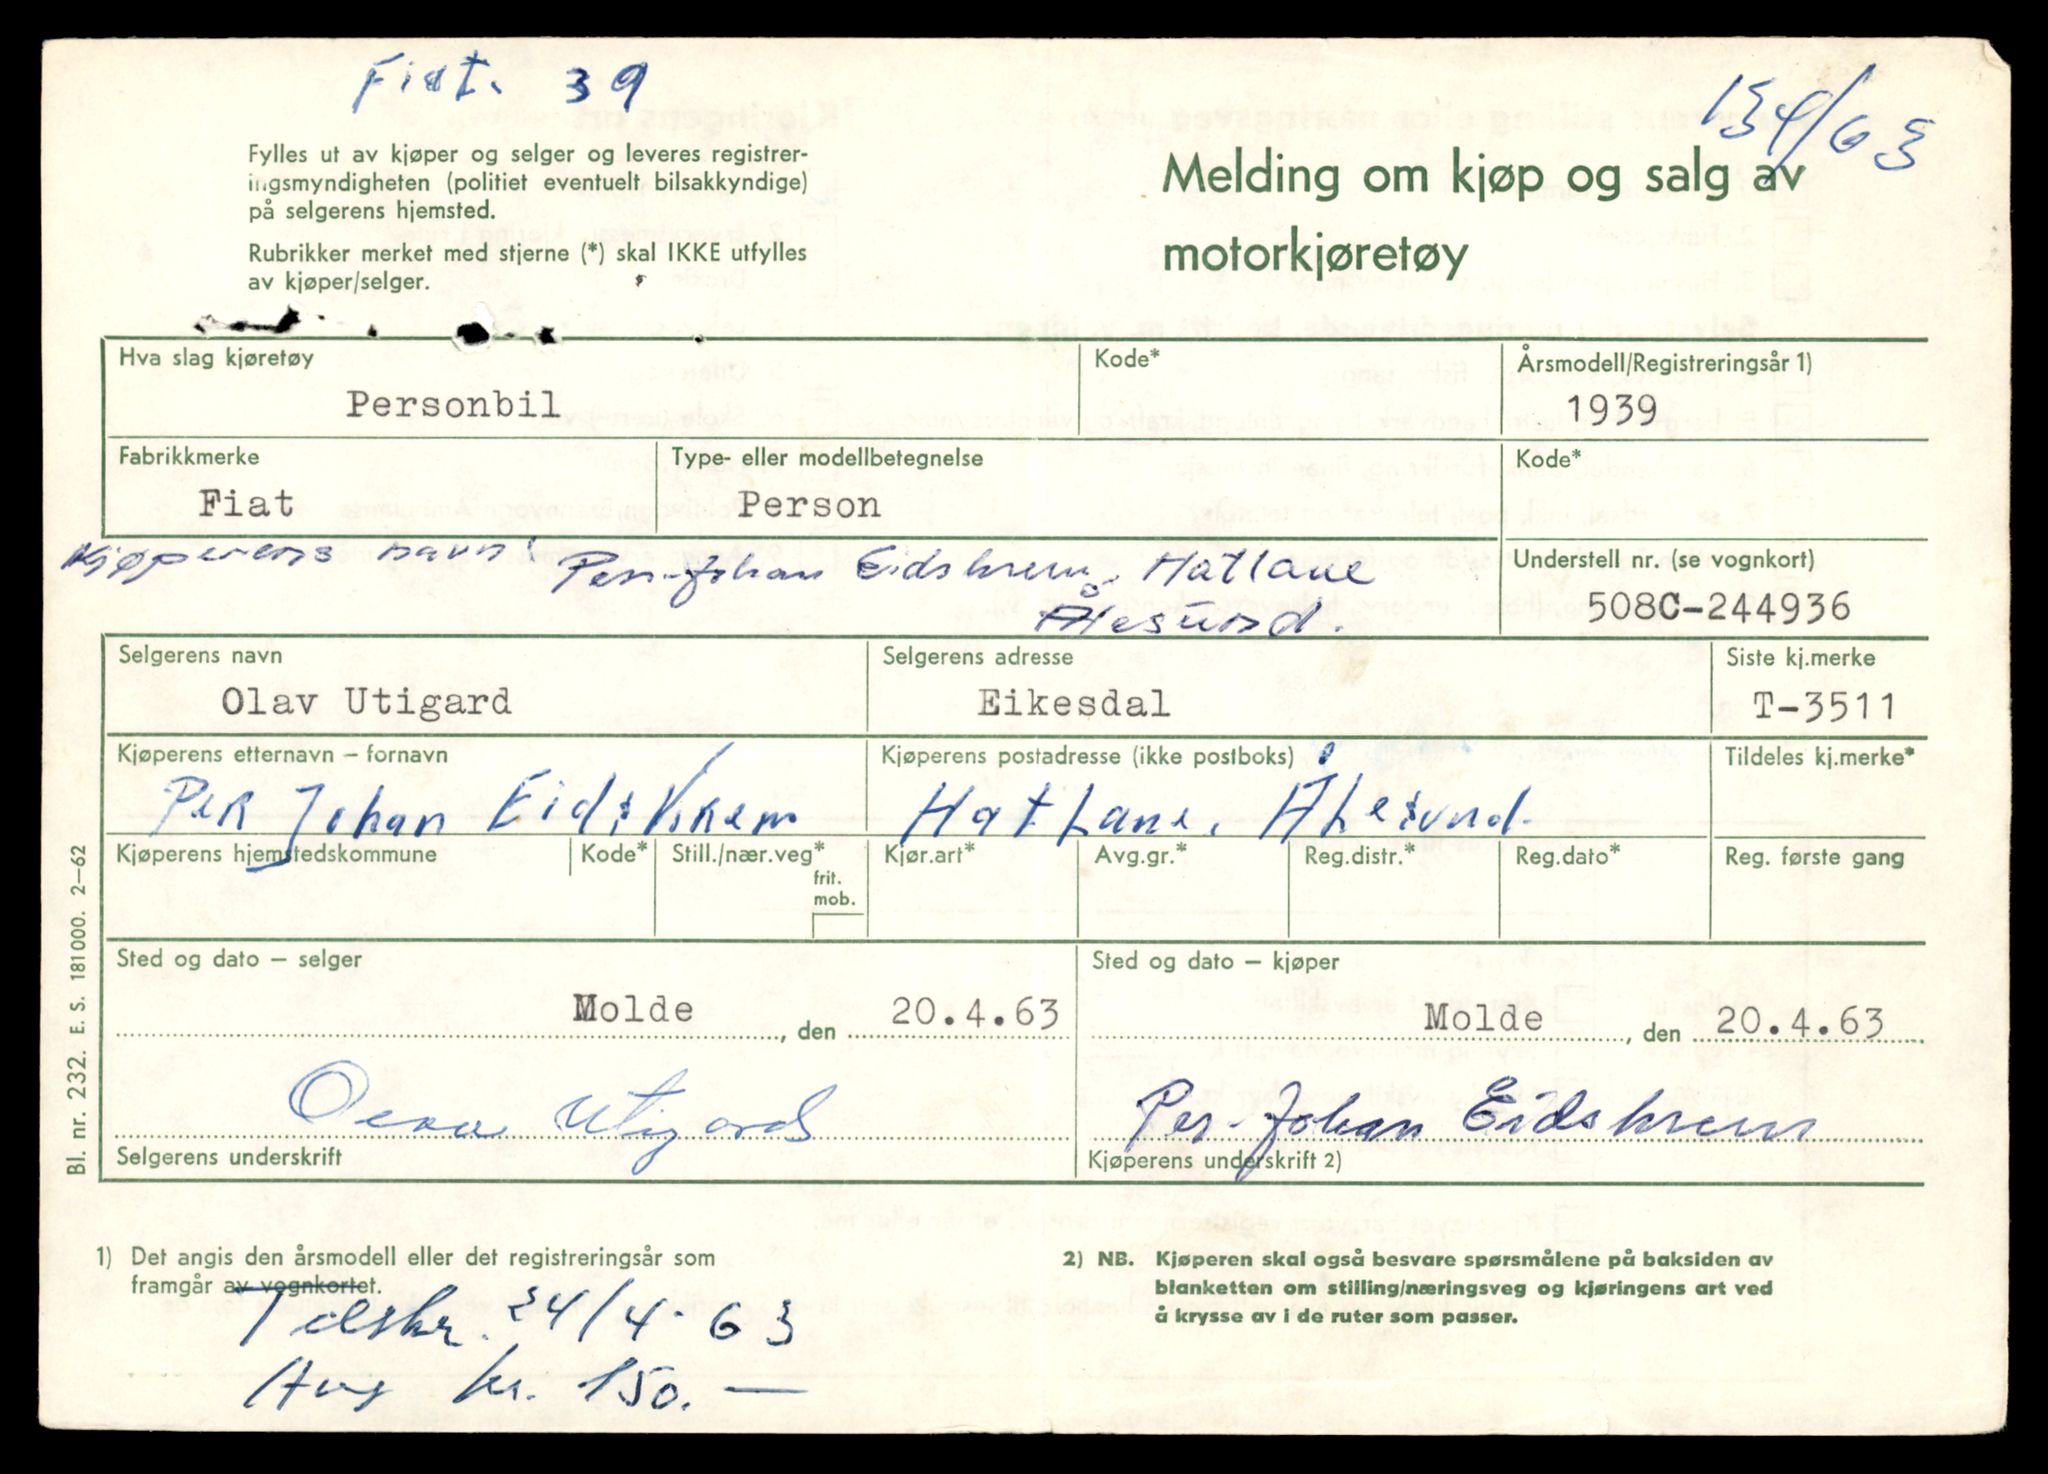 Fiat. 39
134/63
Fylles ut av kjøper og selger og leveres registrer-
ingsmyndigheten (politiet eventuelt bilsakkyndige)
på selgerens hjemsted.
Rubrikker merket med stjerne (*) skal IKKE utfylles
av kjøper/selger.
Melding om kjøp og salg av
motorkjøretøy
Hva slag kjøretøy
Personbil
Kode*
Årsmodell/Registreringsår 1)
1939
Fabrikkmerke
Fiat
Type- eller modellbetegnelse
Person
Kode*
Kjøperens navn: Per-Johan Eidskrem, Hatlane
Ålesund.
Understell nr. (se vognkort)
508C-244936
Selgerens navn
Olav Utigard
Selgerens adresse
Eikesdal
Siste kj.merke
T-3511
Kjøperens etternavn – fornavn
Per Johan Eidskrem
Kjøperens postadresse (ikke postboks)
Hatlane, Ålesund.
Tildeles kj.merke*
Kjøperens hjemstedskommune
Kode*
Still./nær.veg*
frit.
mob.
Kjør.art*
Avg.gr.*
Reg.distr.*
Reg.dato*
Reg. første gang
Sted og dato – selger
Molde, den 20.4.63
Sted og dato – kjøper
Molde, den 20.4.63
Olav Utigard
Selgerens underskrift
Per-Johan Eidskrem
Kjøperens underskrift 2)
Bl. nr. 232. E. S. 181000. 2–62
1) Det angis den årsmodell eller det registreringsår som
framgår av vognkortet.
2) NB. Kjøperen skal også besvare spørsmålene på baksiden av
blanketten om stilling/næringsveg og kjøringens art ved
å krysse av i de ruter som passer.
Tilskr. 24/4-63
Avg kr. 150.—